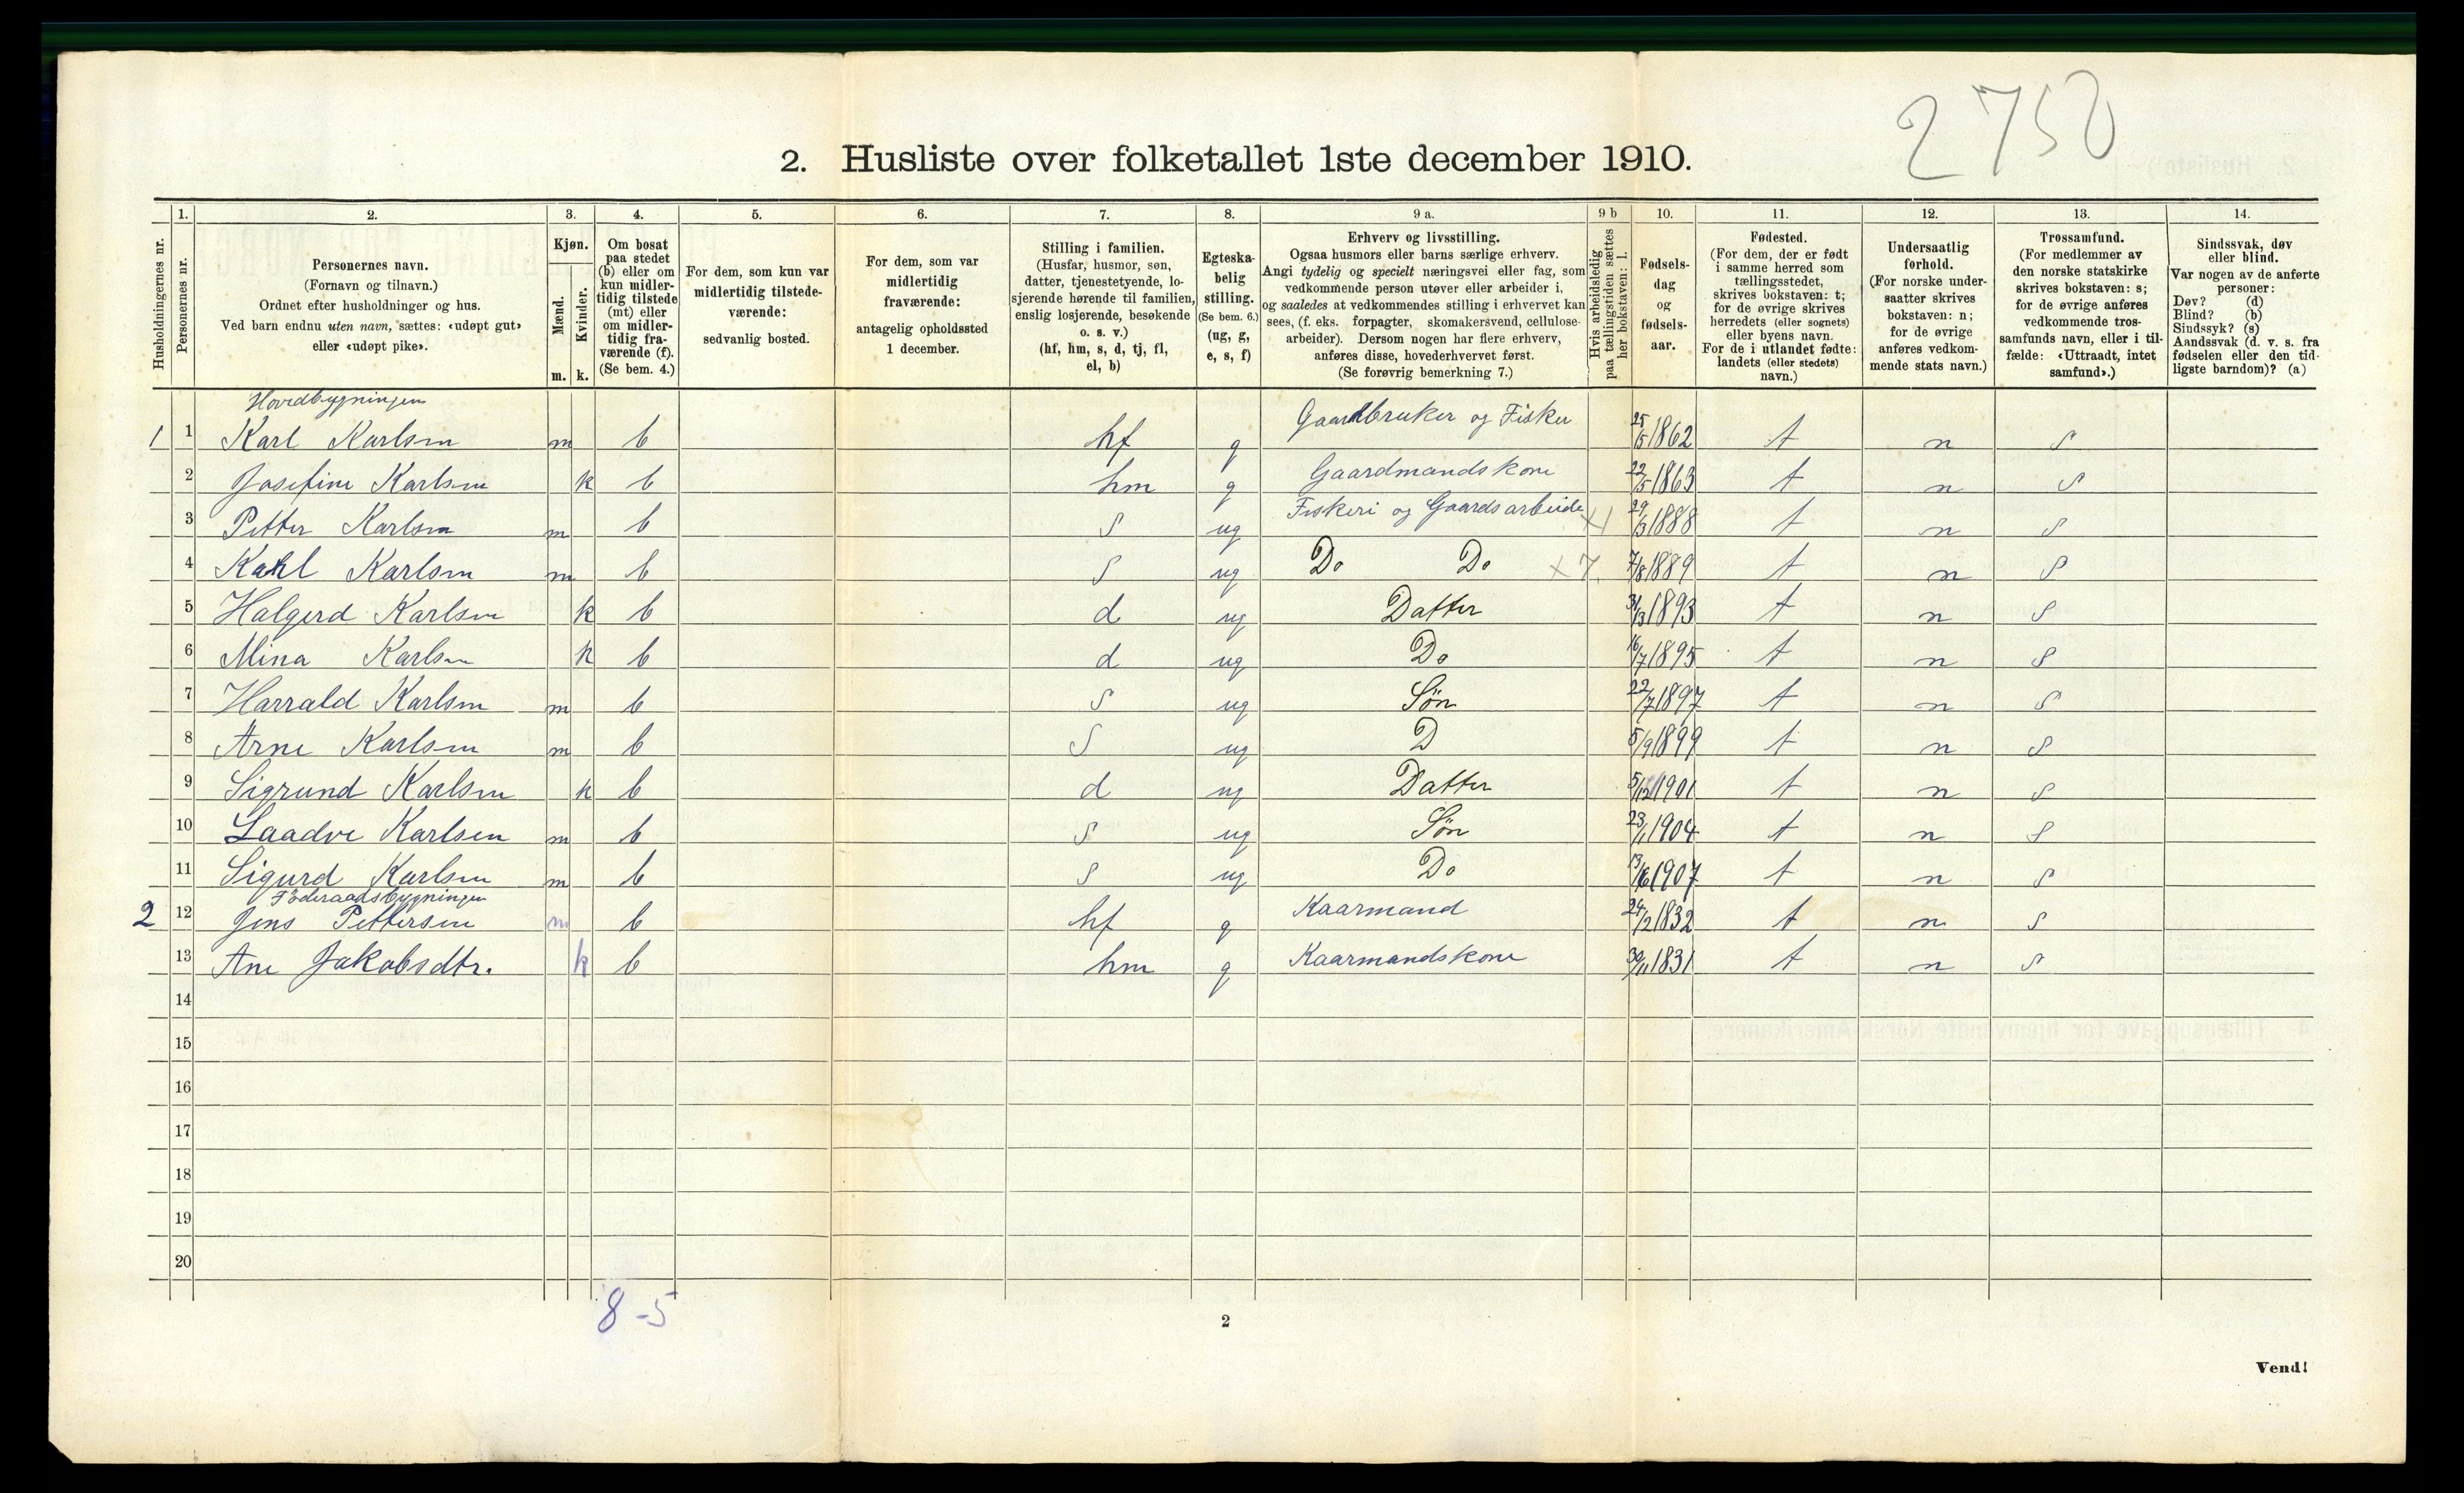 2750
2. Husliste over folketallet 1ste december 1910.
Husholdningernes nr.
1.
Personernes nr.
2.
Personernes navn.
(Fornavn og tilnavn.)
Ordnet efter husholdninger og hus.
Ved barn endnu uten navn, sættes: «udøpt gut»
eller «udøpt pike».
3.
Kjøn.
Mænd.
Kvinder.
m. k.
4.
Om bosat
paa stedet
(b) eller om
kun midler-
tidig tilstede
(mt) eller
om midler-
tidig fra-
værende (f).
(Se bem. 4.)
5.
For dem, som kun var
midlertidig tilstede-
værende:
sedvanlig bosted.
6.
For dem, som var
midlertidig
fraværende:
antagelig opholdssted
1 december.
7.
Stilling i familien.
(Husfar, husmor, søn,
datter, tjenestetyende, lo-
sjerende hørende til familien,
enslig losjerende, besøkende
o. s. v.)
(hf, hm, s, d, tj, fl,
el, b)
8.
Egteska-
belig
stilling.
(Se bem. 6.)
(ug, g,
e, s, f)
9 a.
Erhverv og livsstilling.
Ogsaa husmors eller barns særlige erhverv.
Angi tydelig og specielt næringsvei eller fag, som
vedkommende person utøver eller arbeider i,
og saaledes at vedkommendes stilling i erhvervet kan
sees, (f. eks. forpagter, skomakersvend, cellulose-
arbeider). Dersom nogen har flere erhverv,
anføres disse, hovederhvervet først.
(Se forøvrig bemerkning 7.)
9 b
Hvis arbeidsledig
paa tællingstiden sættes
her bokstaven: l.
10.
Fødsels-
dag
og
fødsels-
aar.
11.
Fødested.
(For dem, der er født
i samme herred som
tællingsstedet,
skrives bokstaven: t;
for de øvrige skrives
herredets (eller sognets)
eller byens navn.
For de i utlandet fødte:
landets (eller stedets)
navn.)
12.
Undersaatlig
forhold.
(For norske under-
saatter skrives
bokstaven: n;
for de øvrige
anføres vedkom-
mende stats navn.)
13.
Trossamfund.
(For medlemmer av
den norske statskirke
skrives bokstaven: s;
for de øvrige anføres
vedkommende tros-
samfunds navn, eller i til-
fælde: «Uttraadt, intet
samfund».)
14.
Sindssvak, døv
eller blind.
Var nogen av de anførte
personer:
Døv? (d)
Blind? (b)
Sindssyk? (s)
Aandssvak (d. v. s. fra
fødselen eller den tid-
ligste barndom)? (a)
Hovedbygningen
1 1 Karl Karlsen m b hf g Gaardbruker og Fisker 25/5 1862 t n s
2 Josefine Karlsen k b hm g Gaardmandskone 22/5 1863 t n s
3 Petter Karlsen m b s ug Fiskeri og Gaardsarbeide x1 29/3 1888 t n s
4 Karl Karlsen m b s ug Do Do x 7. 7/8 1889 t n s
5 Halgerd Karlsen k b d ug Datter 31/3 1893 t n s
6 Mina Karlsen k b d ug Do 16/7 1895 t n s
7 Harrald Karlsen m b s ug Søn 22/7 1897 t n s
8 Arne Karlsen m b s ug D 5/9 1899 t n s
9 Sigrund Karlsen k b d ug Datter 5/12 1901 t n s
10 Laadve Karlsen m b s ug Søn 23/1 1904 t n s
11 Sigurd Karlsen m b s ug Do 13/6 1907 t n s
Föderaadsbygningen
2 12 Jens Pettersen m b hf g Kaarmand 24/2 1832 t n s
13 Ane Jakobsdtr. k b hm g Kaarmandskone 30/11 1831 t n s
14
15
16
17
18
19
20
8-5
2
Vend!